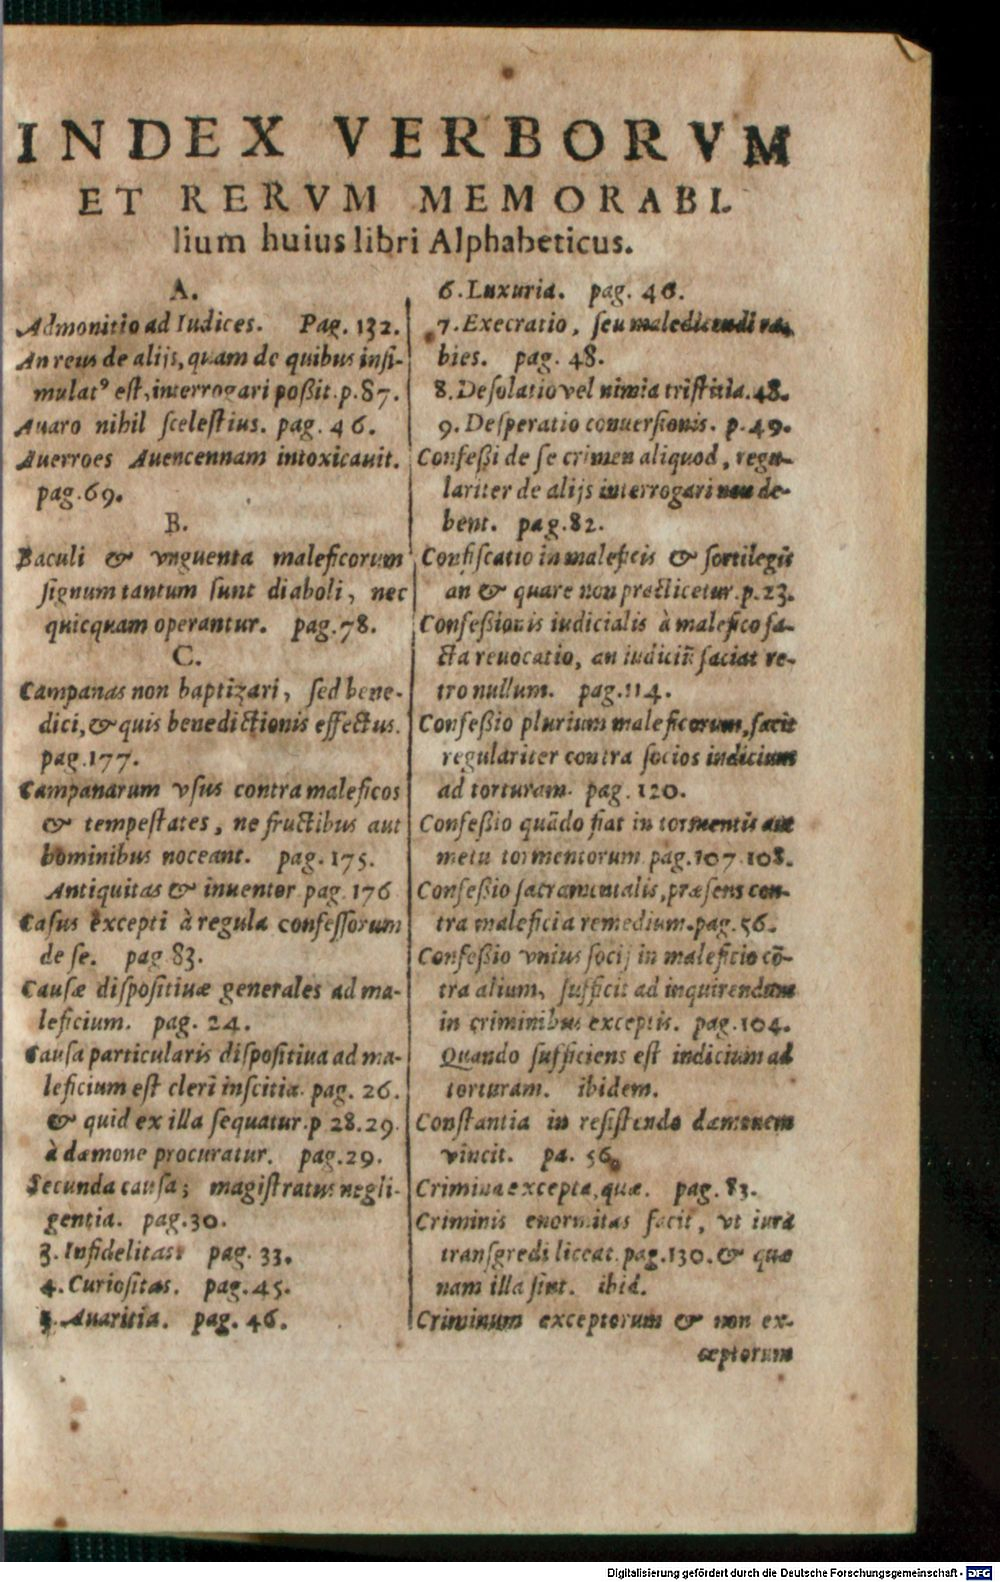 INDEX VERBORVM
ET RERVM MEMORABI-
lium huius libri Alphabeticus.
A.
Admonitio ad Iudices. Pag. 132.
An reus de alijs, quam de quibus insi-
mulatꝰ est, interrogari poßit. p. 87.
Auaro nihil scelestius. pag. 46.
Auerroes Auencennam intoxicauit.
pag. 69.
B.
Baculi & vnguenta maleficorum
signum tantum sunt diaboli, nec
quicquam operantur. pag. 78.
C.
Campanas non baptizari, sed bene-
dici, & quis benedictionis effectus.
pag. 177.
Campanarum vsus contra maleficos
& tempestates, ne fructibus aut
hominibus noceant. pag. 175.
Antiquitas & inuentor pag. 176
Casus excepti à regula confessorum
de se. pag. 83.
Causæ dispositiuæ generales ad ma-
leficium. pag. 24.
Causa particularis dispositiua ad ma-
leficium est cleri inscitia. pag. 26.
& quid ex illa sequatur. p 28. 29.
à dæmone procuratur. pag. 29.
Secunda causa; magistratus negli-
gentia. pag. 30.
3. Infidelitas. pag. 33.
4. Curiositas. pag. 45.
5. Auaritia. pag. 46.
6. Luxuria. pag. 46.
7. Execratio, seu maledicendi ra-
bies. pag. 48.
8. Desolatio vel nimia tristitia. 48.
9. Desperatio conuersionis. p. 49.
Confeßi de se crimen aliquod, regu-
lariter de alijs interrogari non de-
bent. pag. 82.
Confiscatio in maleficis & sortilegis
an & quare non practicetur. p. 23.
Confeßionis iudicialis à malefico fa-
cta reuocatio, an iudiciũ faciat re-
tro nullum. pag. 114.
Confeßio plurium maleficorum, facit
regulariter contra socios indicium
ad torturam. pag. 120.
Confeßio quãdo fiat in tormentis aut
metu tormentorum pag. 107. 108.
Confeßio sacramentalis, præsens con-
tra maleficia remedium. pag. 56.
Confeßio vnius socij in maleficio cõ-
tra alium, sufficit ad inquirendum
in criminibus exceptis. pag. 104.
Quando sufficiens est indicium ad
torturam. ibidem.
Constantia in resistendo dæmonem
vincit. pa. 56.
Crimina excepta, quæ. pag. 83.
Criminis enormitas facit, vt iura
transgredi liceat. pag. 130. & quæ
nam illa sint. ibid.
Criminum exceptorum & non ex-
ceptorum
Digitalisierung gefördert durch die Deutsche Forschungsgemeinschaft - DFG